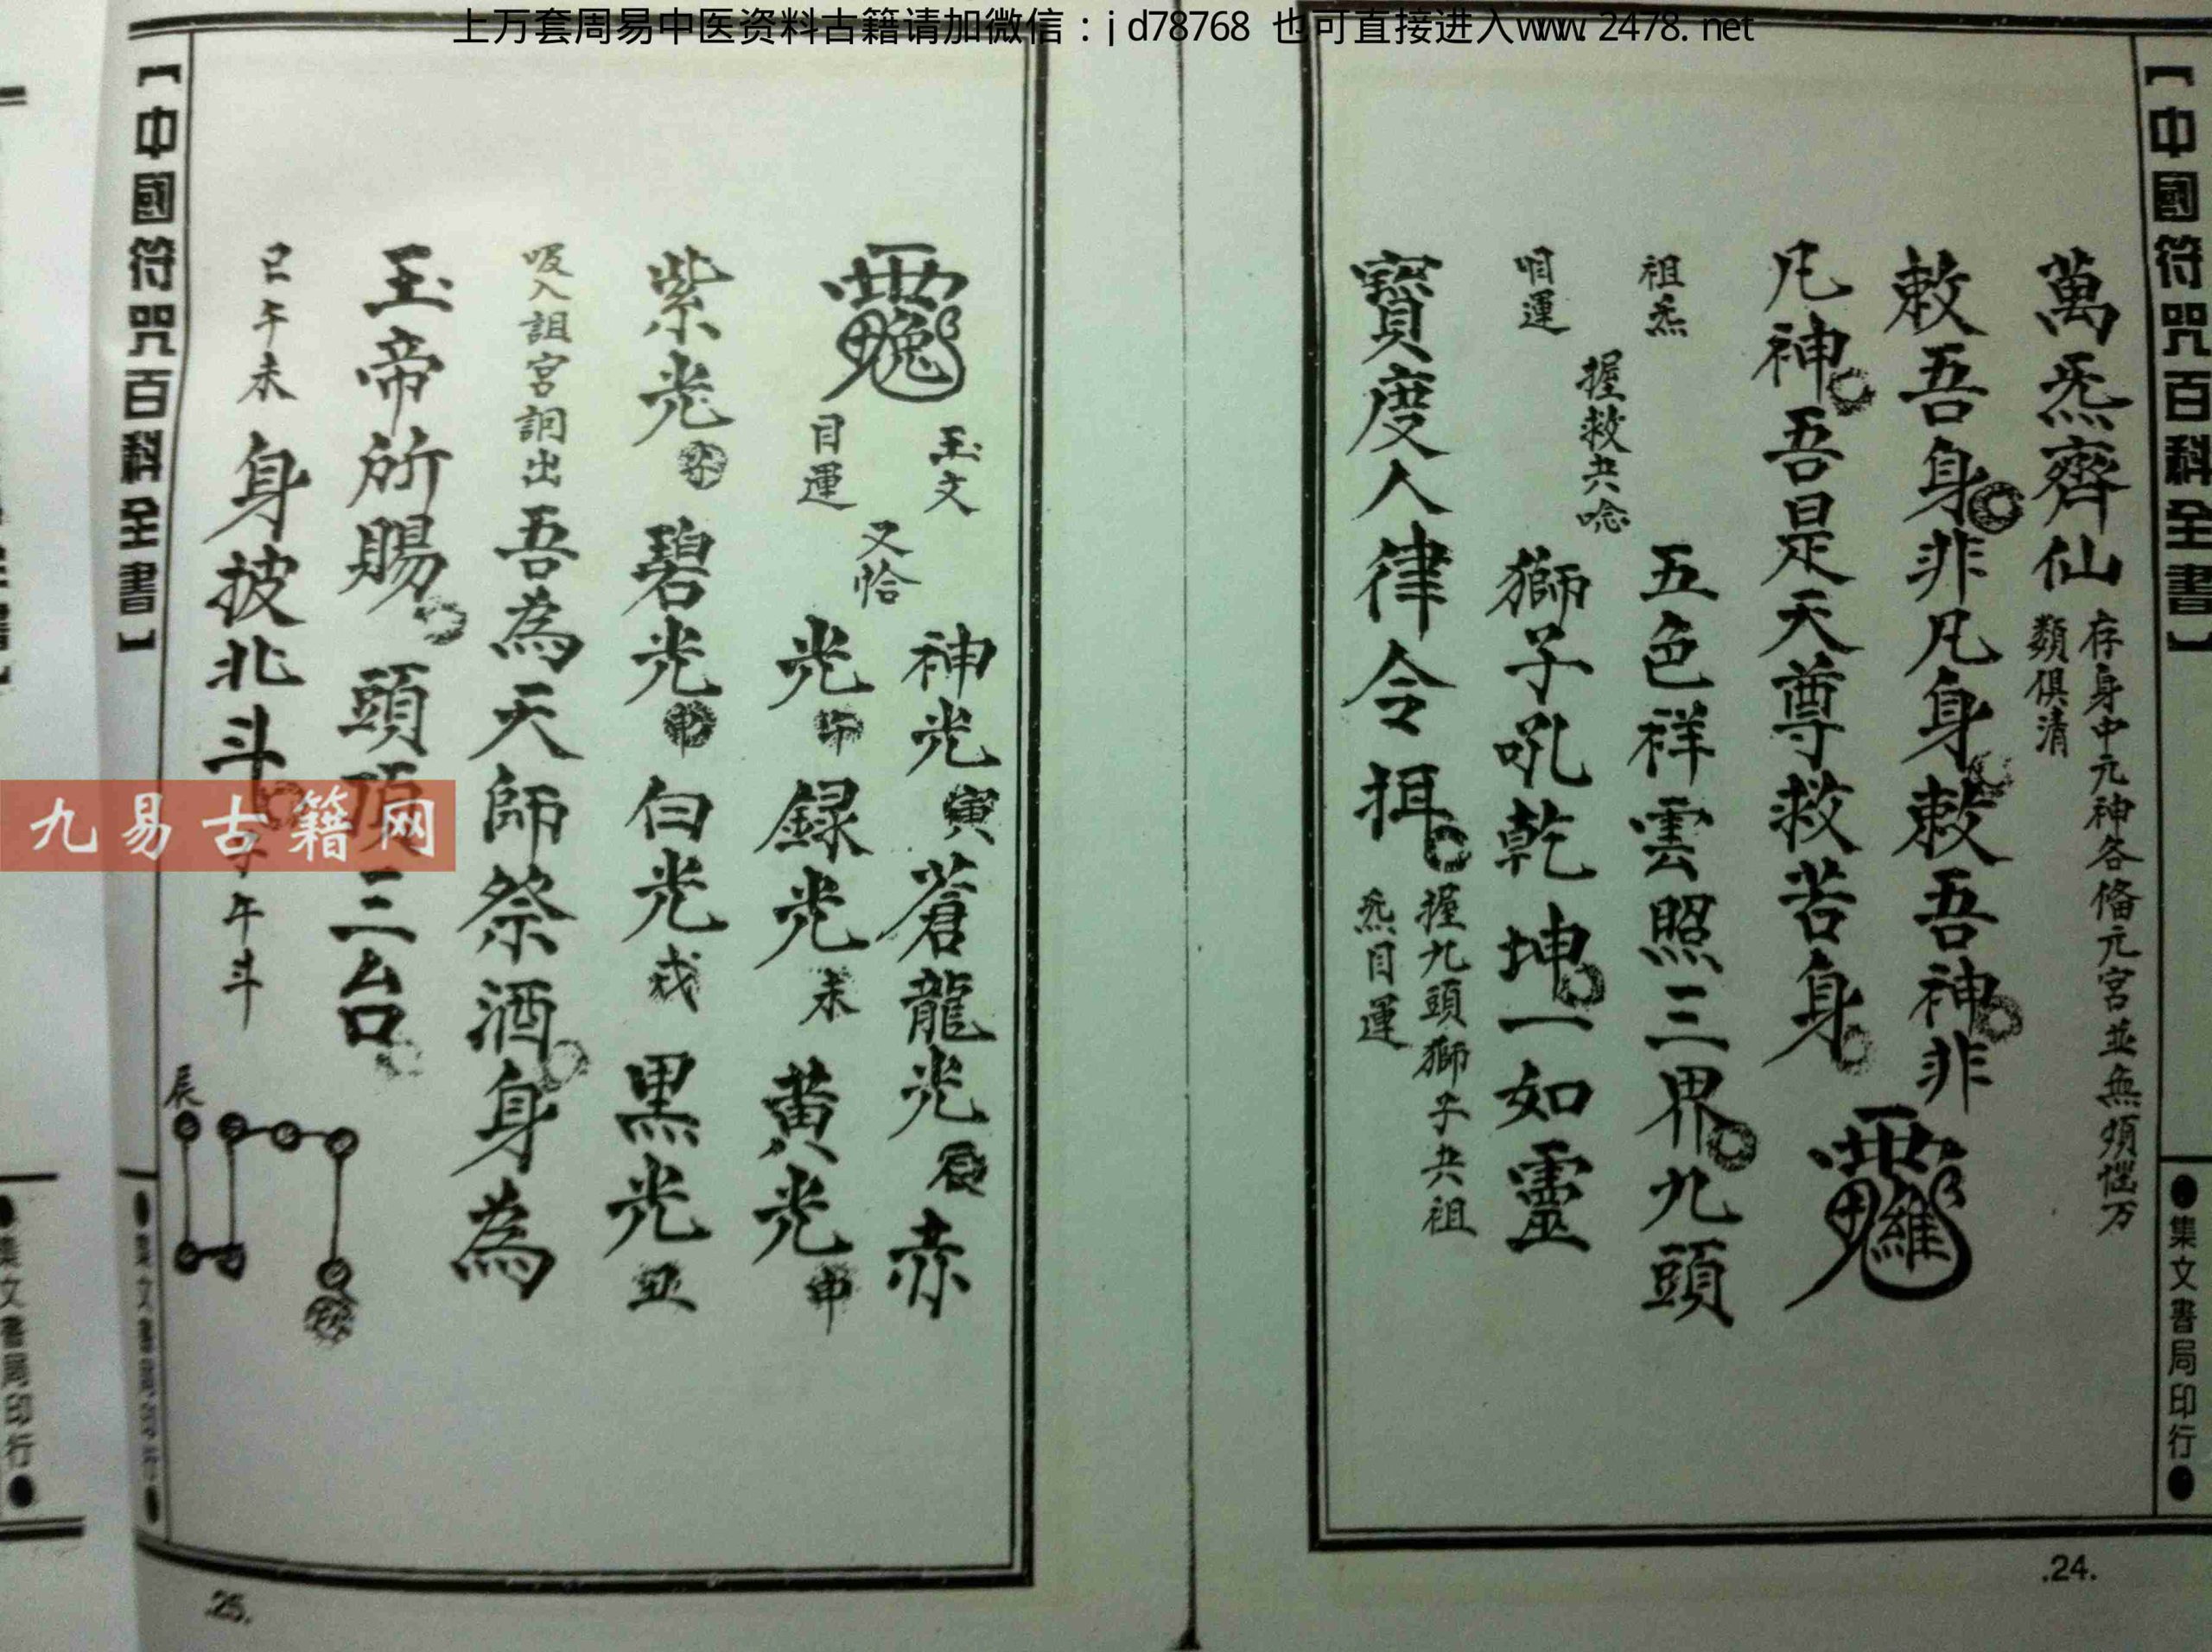 上万套周易中医资料古籍请加微信：jd78768 也可直接进入www.2478.net
【中國符咒百科全書】
●集文書局印行●
萬炁齊仙
存身中元神各偹元宮並無煩惱万
類俱清
敕吾身非凡身敕吾神非
凡神吾是天尊救苦身
祖炁
唨運
握救共唸
五色祥雲照三界九頭
獅子吼乾坤一如靈
寶度人律令挕
握九頭獅子共祖
炁目運
.24.
玉文
目運
又恰
神光寅蒼龍光辰赤
光午録光未黃光申
紫光
碧光白光戌黑光丑
吸入詛宮詞出
吾為天師祭酒身為
玉帝所賜頭頂三台
巳午未
身披北斗
子午斗
辰
【中國符咒百科全書】
●集文書局印行●
.25.
九易古籍网
集文書局印行●